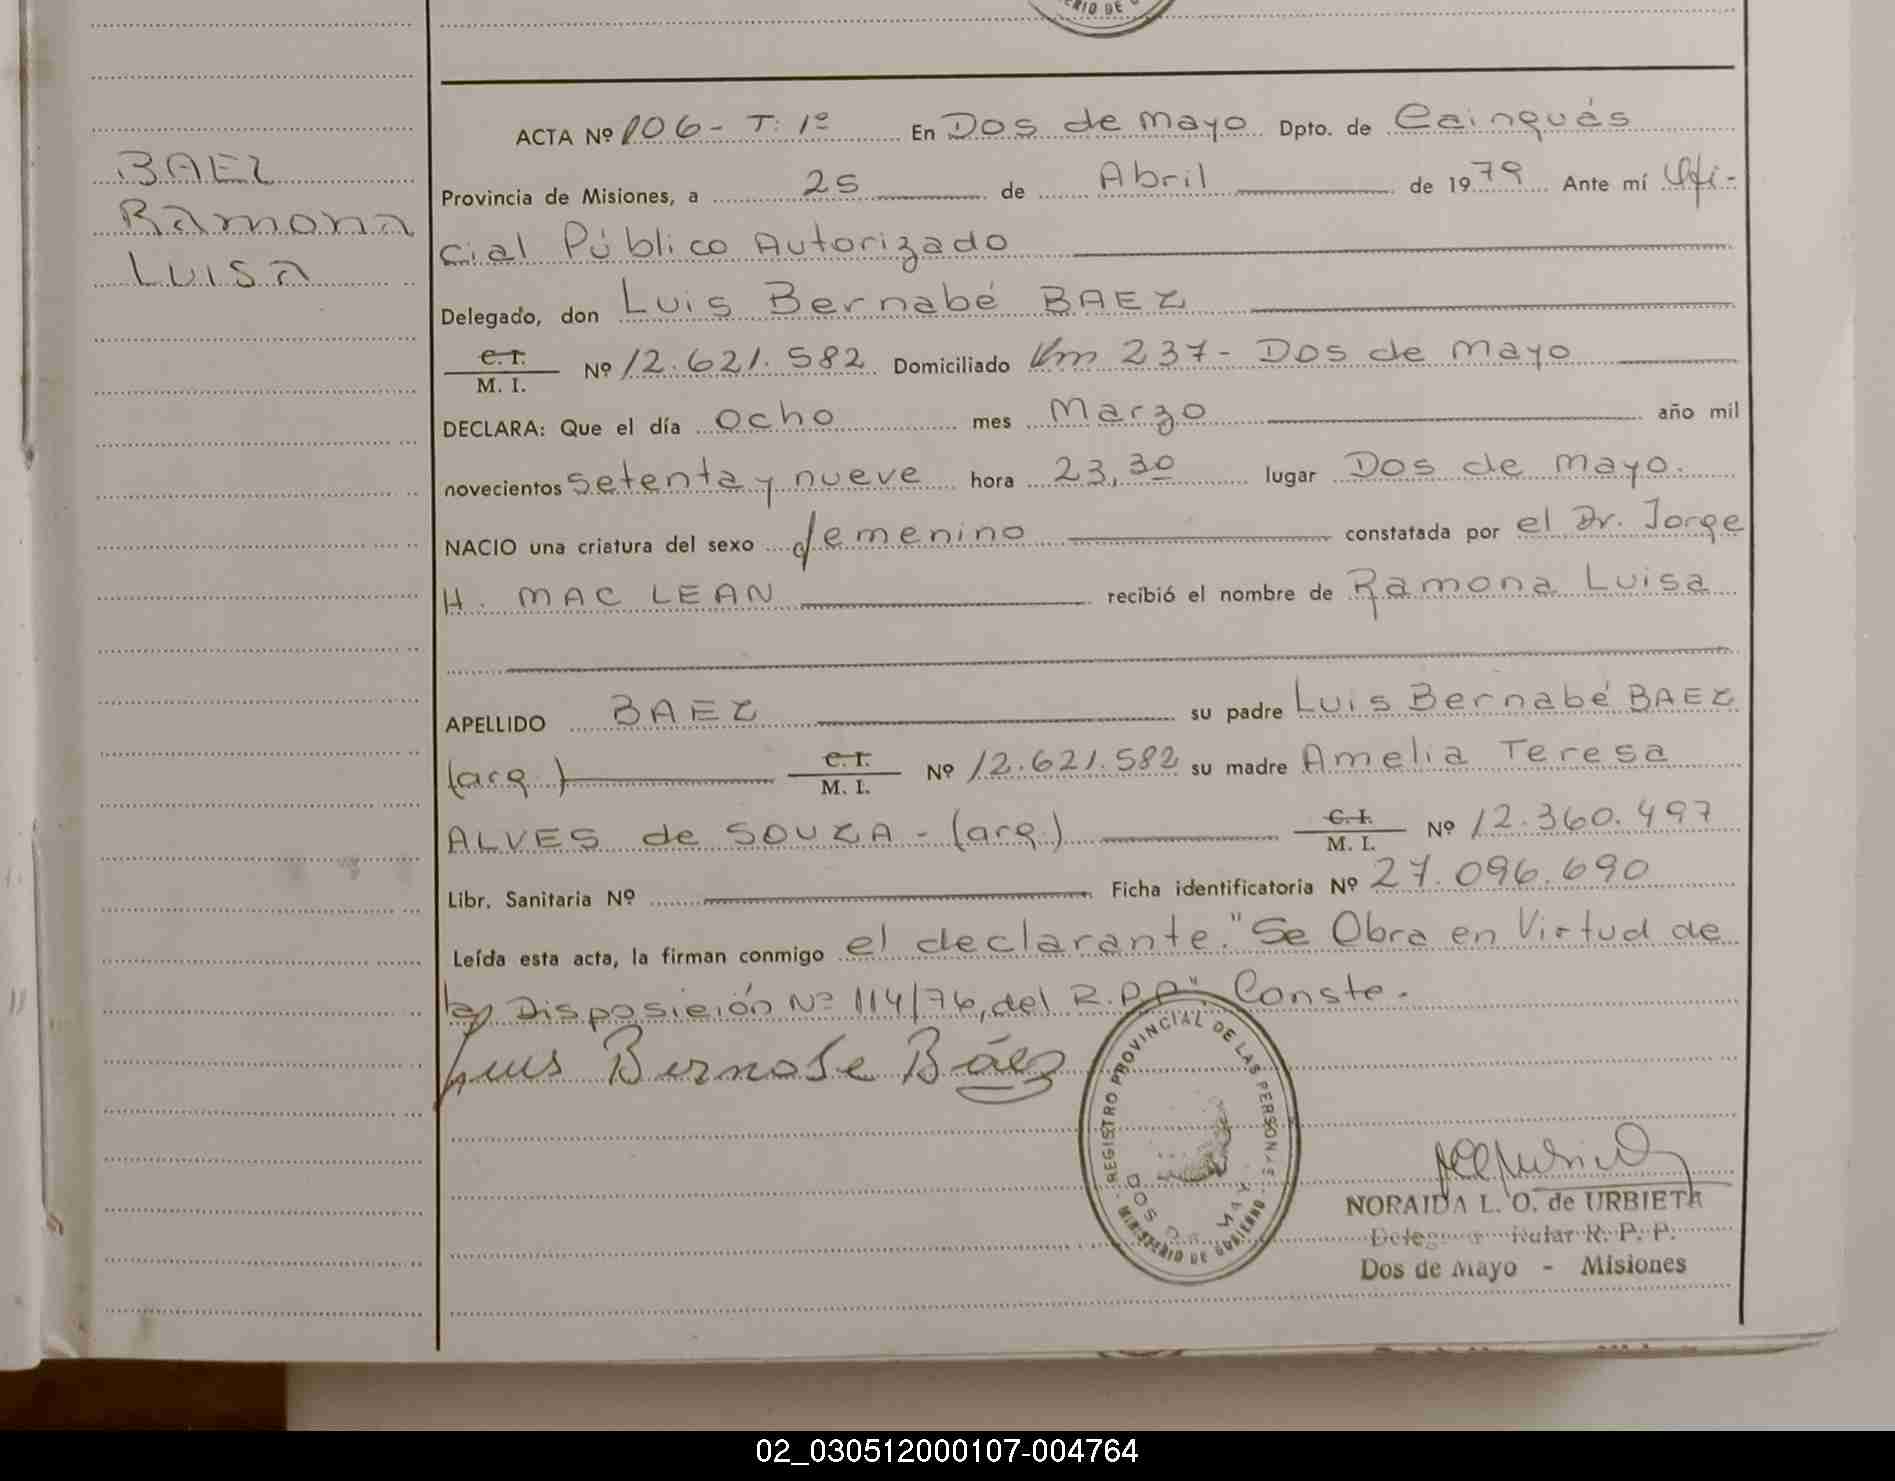 ERIO DE G
BAEZ
Ramona
LUISA
ACTA Nº 106- T: 1º En Dos de Mayo Dpto. de Cainguás
Provincia de Misiones, a 25 de Abril de 1979 Ante mí Ofi-
cial Público Autorizado
Delegado, don Luis Bernabé BAEZ
C. I.
M. I. Nº 12.621.582 Domiciliado Km 237- Dos de Mayo
DECLARA: Que el día ocho mes Marzo año mil
novecientos setenta y nueve hora 23,30 lugar Dos de Mayo.
NACIO una criatura del sexo femenino constatada por el Dr. Jorge
H. MAC LEAN recibió el nombre de Ramona Luisa
APELLIDO BAEZ su padre Luis Bernabé BAEZ
(arg.) C. I. M. I. Nº 12.621.582 su madre Amelia Teresa
ALVES de SOUZA - (arg.) C. I. M. I. Nº 12.360.497
Libr. Sanitaria Nº Ficha identificatoria Nº 27.096.690
Leída esta acta, la firman conmigo el declarante. "Se Obra en Virtud de
la Disposición Nº 114/76, del R.P.P." Conste.
Luis Bernabe Báez
REGISTRO PROVINCIAL DE LAS PERSONAS
DOS DE MAYO
MINISTERIO DE GOBIERNO
NORAIDA L. O. de URBIETA
Delegada Titular R. P. P.
Dos de Mayo - Misiones
02_030512000107-004764